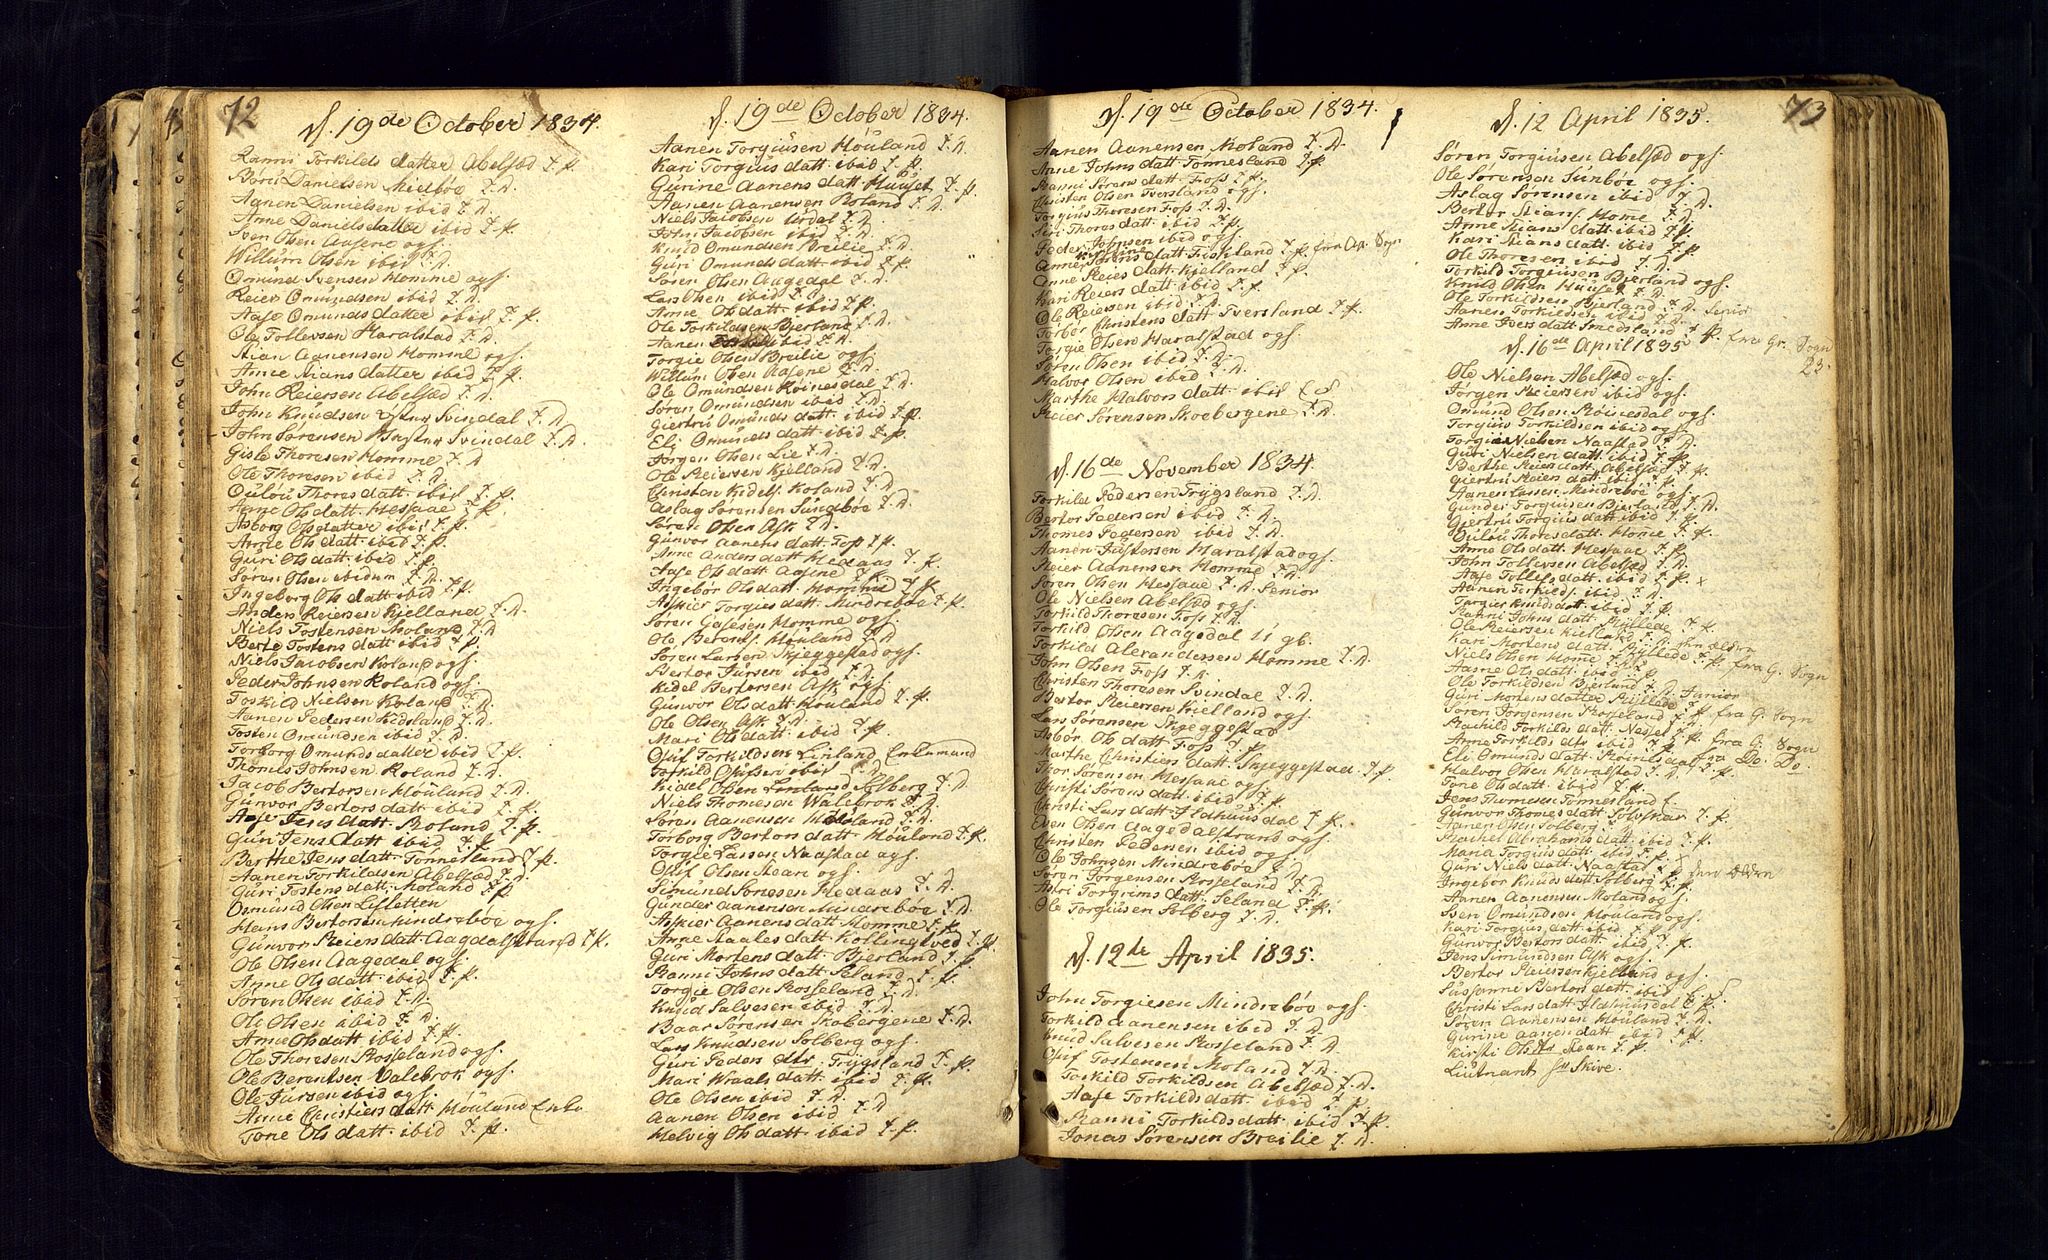 72
d. 19de October 1834.
Ranni Torkilds datter Abelsæd T. P.
Børü Danielsen Miebøe T. D.
Aanen Danielsen ibid T. D.
Anne Danielsdatter ibid T. P.
Sven Olsen Aasene ogs.
Willüm Olsen ibid T. D.
Omünd Svensen Homme ogs.
Reier Omündsen ibid T. D.
Aase Omunds datter ibid T. P.
Ole Tollevsen Haralstad T. D.
Stian Aanensen Homme ogs.
Anne Stians datter ibid T. P.
John Reiersen Abelsæd T. D.
John Knüdsen Svindal T. D.
John Sørensen Svindal T. D.
Gisle Thoresen Homme T. D
Ole Thoresen ibid T. D
Oulou Thores datt. ibid T. P.
Anne Ols datt. Messaae T. P.
Asborg Olsdatter ibid T. P.
Anne Ols datt. ibid T. P.
Güri Ols datt. ibid T. P.
Søren Olsen ibidum T. D.
Ingeborg Ols datt ibid T. P.
Anders Reiersen Kielland T. D.
Niels Tostensen Moland T. D
Berte Tostens datt ibid T. P.
Niels Jacobsen Roland ogs.
Peder Johnsen Roland ogs.
Torkild Nielsen Roland T. D
Aanen Pedersen Kidsland T. D.
Tosten Omündsen ibid T. D
Torborg Omunds datter ibid T. P.
Thomes Johnsen Roland T. D.
Jacob Bertorsen Høüland T. D.
Günvor Bertors datt ibid T. P.
Aase Jens datt. Roland T. P.
Güri Jens datt ibid T. P.
Barthe Jens datt. Tonnesland T. P.
Aanen Torkildsen Abelsæd T. D.
Güri Tostens datt. Moland T. P
Osmünd Olsen Lisletten
Hans Bertorsen Mindrebøe ogs.
Günvor Reiers datt. Aagdalstrand T. P.
Ole Olsen Aagedal ogs.
Anne Ols datt. ibid T. P.
Søren Olsen ibid T. D.
Ole Olsen ibid T. D.
Anne Olsdatt ibid T. P.
Ole Thoresen Rosseland ogs.
Ole Berentsen Valebrok ogs.
Ole Jürsen ibid ogs.
Anne Christiens datt. Høüland Enke
Tone Ols datt. ibid T. P.
d. 19de October 1834.
Aanen Torgiüsen Høüland T. D.
Kari Torgiüs datt ibid T. P.
Gürine Aanens datt Hüüset T. P.
Aanen Aanensen Roland T. D.
Niels Jacobsen T. D.
John Jacobsen ibid T. D.
Knüd Omundsen Breilie T. D
Güri Omunds datt. ibid T. P.
Søren Olsen Aagedal T. D.
Lars Olsen ibid T. D
Anne Ols datt. ibid T. P.
Ole Torkildsen Bjerland T. D
Aanen ibid T. D.
Torgie Olsen Breilie ogs
Willüm Olsen Aasene T. D.
Ole Omündsen Røinesdal T. D
Søren Omündsen ibid T. D.
Giertrü Omünds datt. ibid T. P.
Eli Omünds datt. ibid T. P.
Jørgen Olsen Lie T. D
Ole Reiersen Kjelland T. D.
Christen Kidels. Roland T. D
Aslag Sørensen Sündbøe T. D.
Søren Olsen Ask T. D.
Günvor Aanens datt. Foss T. P.
Anne Anders datt Hedaas T. P.
Aase Ols datt Aasene T. P.
Ingebør Ols datt. Homme T P
Askier Torgies datt. Mindrebøe T. P.
Søren Galesen Homme ogs.
Ole Berents. Høüland T. D
Søren Larsen Skjeggestad ogs.
Bertor Jürsen ibid T. D
Kidel Bertorsen Ask ogs.
Günvor Ols datt Høüland T. P.
Ole Olsen Ask T. D
Mari Ols datt. ibid T. P.
Oluf Torkildsen Linland Enkemand
Torkild Olüfsen ibid T. D
Kidel Olsen Solberg T. D
Niels Thomesen Walebrok T. D.
Søren Aanensen Høüland T. D.
Torborg Bertors datt. Høüland T. P.
Torgie Larsen Naastad ogs.
Oluf Olsen Stean ogs.
Simünd Hedaas T. D.
Günder Aanensen Mindrebøe T. D
Askier Aanens datt. Homme T. P.
Anne Aales datt. Kollingtved T. P.
Güri Mortens datt. Bjerland T. P.
Ranni Johns datt. Seland T. P.
Torgie Olsen Rosseland T. D.
Knüd Salvesen ibid T. D.
Baar Sørensen Skobergene T. D.
Lars Knudsen Solberg ogs.
Güri Peders dtr. Trygsland T. P.
Mari Wraals datt. ibid T. P.
Ole Olsen ibid T. D
Aanen Olsen ibid T. D
Helvig Ols datt. ibid T. P.
d. 19de October 1834.
Aanen Aanensen Moland T. D.
Anne Johns datt Tonnesland T. P.
Ranni Sørens datt. Foss T. P.
Christen Olsen Tversland ogs.
Torgiüs Thoresen Foss T. D.
Siri Thores datt. ibid T. P.
Peder Johnsen ibid ogs.
Anne datt. Fiskland T. P. fra Sogn
Anne Reies datt Kjelland T. P.
Kari Reiers datt. ibid T. P.
Ole Reiersen ibid T. D.
Torbør Christens datt. Tversland T. P.
Torgie Olsen Haralstad ogs.
Søren Olsen ibid T. D
Halvor Olsen ibid T. D.
Marthe Halvors datt ibid
Reier Sørensen Skoebergene T. D.
d. 16de November 1834.
Torkild Pedersen Trygsland T. D.
Bertor Pedersen ibid T. D.
Thomes Pedersen ibid T. D.
Aanen Justersen Haralstad ogs.
Reier Aanensen Homme T. D.
Søren Olsen Messaae T. D. Senior
Ole Nielsen Abelsæd ogs.
Torkild Thoresen Foss T. D.
Torkild Olsen Aagedal 11 gb.
Torkild Alexandersen Homme T. D.
John Olsen Foss T. D.
Christen Thoresen Svindal T. D.
Bertor Reiersen Kielland ogs.
Lars Sørensen Skjeggestad
Asbør Ols datt. Foss T. P.
Marthe Christiens datt. Skjeggestad T. P.
Thor Sørensen Messaae ogs.
Christi Sørens datt. ibid T. P.
Christi Lars datt Ildhuusdal T. P.
Even Olsen Aagedalstrand ogs.
Christen Pedersen ibid ogs.
Ole Johnsen Mindrebøe T. D.
Søren Jørgensen Rosseland T. D.
Astri Torgrims datt. Seland T. P.
Ole Torgiüsen Solberg T. D.
d. 12te April 1835.
John Torgiesen Mindrebøe ogs.
Torkild Aanensen ibid T. D.
Knüd Salvesen Rosseland T. D
Oluf Tostensen Moland T. D
Torkild Torkildsen Abelsæd T. D.
Aase Torkilds datt. ibid T. P.
Ranni Torkilds datt. ibid T. P.
Jonas Sørensen Breilie T. D.
73
d. 12 April 1835.
Søren Torgiüsen Abelsæd ogs.
Ole Sørensen Sünbøe ogs.
Aslag Sørensen ibid T. D.
Bertor Stians. Home T. D.
Anne Stians datt. ibid T. P.
Kari Stians datt. ibid T. P.
Ole Thoresen ibid T. D.
Torkild Torgiüsen Bjerland ogs.
Knüd Olsen Hüüset T. D.
Ole Torkildsen Bjerland T. D. Senior
Aanen Torkildsen ibid T. D.
Anne Ivers datt. Smedsland T. P. fra Gr. Sogn
d. 16de April 1835
23.
Ole Nielsen Abelsæd ogs.
Jørgen Reiersen ibid ogs.
Omünd Olsen Røinesdal ogs.
Torgiüs Torkildsen ibid ogs.
Torgie Nielsen Naastad T. D.
Güri Nielsen datt. ibid T. P.
Berthe Reiers datt. Abelsæd T. P.
Giertrü Reiers datt. ibid T. P.
Aanen Larsen Mindrebøe ogs.
Gunder Torgiusen Bjerland T. D.
Gjertrü Torgiüs datt. ibid T. P.
Oulou Thores datt. Home T. P.
Anne Ols datt. Messaae T. P.
John Tollevsen Abelsæd T. D.
Aase Tollefs datt. ibid T. P. x
Aanen Torkilds. ibid T. D.
Torgier Knüds datt. ibid T. P.
Ranni Johns datt. Ryllede T. P.
Ole Reiersen Kielland T. D. den ældre
Kari Mortens datt. Ryllede T. P. fra G. Sogn
Niels Olsen Home T. D.
Aasne Ols datt. ibid T. P.
Ole Torkildsen Bjerland T. D. Junior
Guri Mortens datter Ryllede T. P. fra G. Sogn
Søren Jørgensen Rosseland T. D.
Rachild Torkilds datt. Nasset T. P. fra G. Sogn
Anne Torkilds dtr. ibid T. P. fra Do. Do.
Eli Omunds datt. Røinesdal T. P.
Halvor Olsen Haralstad T. D.
Tone Ols datt. ibid T. P.
Jens Thomesen Tonnesland
Günvor Thomes datt. T. P.
Aanen Olsen Solberg T. D
Rachel Abrahams datt. ibid T. P.
Maria Torgiüs datt. ibid T. P.
Güri Niels datt. Naastad T. P. den Ælden
Ingebør Knüds datt. Solberg T. P.
Aanen Aanensen Moland ogs.
Sven Omündsen Høüland ogs.
Kari Torgiüs datt. ibid T. P.
Günvor Bertors datt. ibid T. P.
Jens Simündsen Ask ogs.
Bertor Reiersen Kielland ogs.
Susanne Bertors datt. ibid
Christi Lars datt Ildhuusdal
Søren Aanensen Høüland T. D.
Gürine Aanens datt ibid T. P.
Kirsti Ols dtr Stean T. P.
Liutnant Skive.